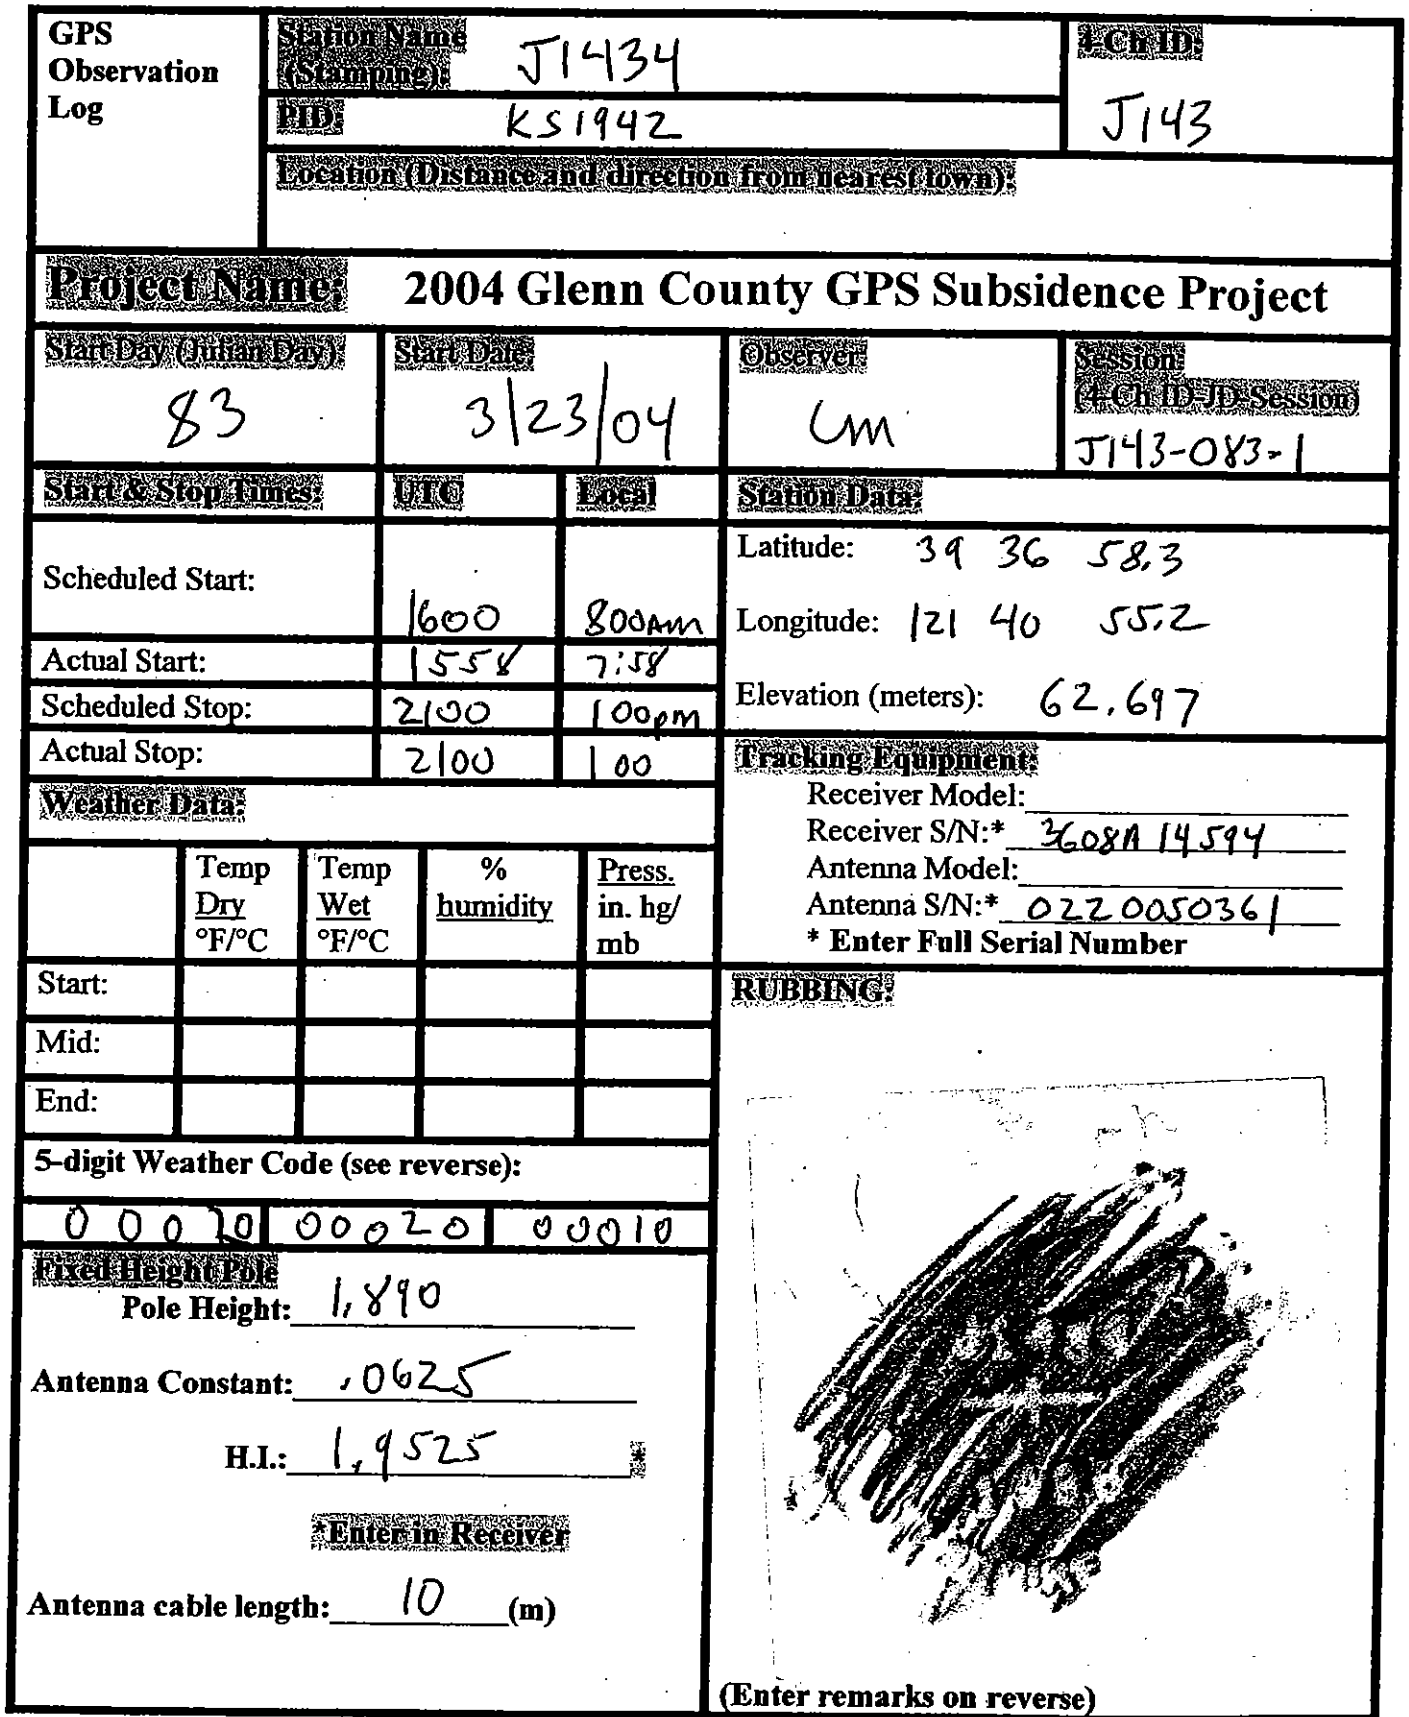 GPS
Observation
Log
Station Name
(Stamping): J1434
PID: KS1942
4-Ch ID:
J143
Location (Distance and direction from nearest town):
Project Name: 2004 Glenn County GPS Subsidence Project
Start Day (Julian Day)
83
Start Date
3/23/04
Observer
Session:
(4-Ch ID-JD-Session)
J143-083-1
Start & Stop Times: UTC Local
Scheduled Start: 1600 800AM
Actual Start: 1558 7:58
Scheduled Stop: 2100 100pm
Actual Stop: 2100 100
Station Data:
Latitude: 39 36 58.3
Longitude: 121 40 55.2
Elevation (meters): 62.697
Tracking Equipment:
Receiver Model:
Receiver S/N:* 3608A14594
Antenna Model:
Antenna S/N:* 0220050361
* Enter Full Serial Number
Weather Data:
Temp
Dry
°F/°C
Temp
Wet
°F/°C
%
humidity
Press.
in. hg/
mb
Start:
Mid:
End:
5-digit Weather Code (see reverse):
00020 00020 00010
Fixed Height Pole
Pole Height: 1.890
Antenna Constant: .0625
H.I.: 1.9525 *
*Enter in Receiver
Antenna cable length: 10 (m)
RUBBING:
(Enter remarks on reverse)